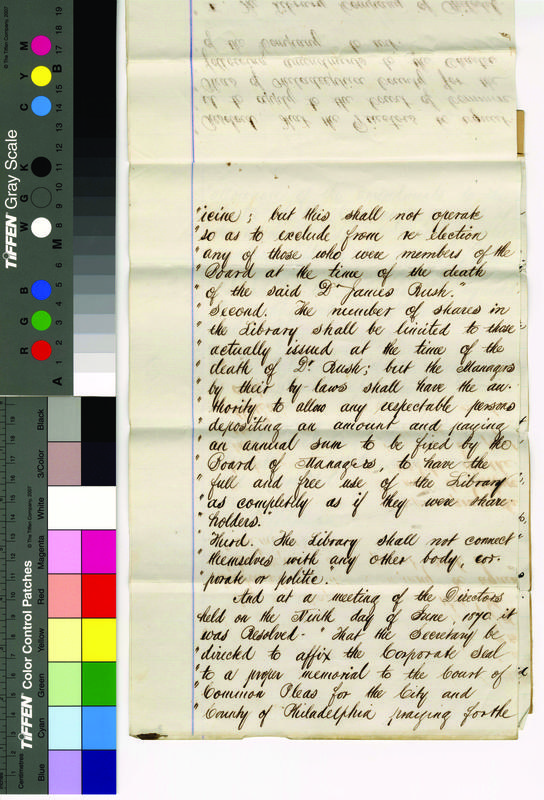 "icine; but this shall not operate
"so as to exclude from re-election
"any of those who were members of the
"Board at the time of the death
"of the said Dr James Rush."
"Second. The number of shares in
"the Library shall be limited to those
"actually issued at the time of the
"death of Dr. Rush; but the Managers
"by their by-laws shall have the au-
"thority to allow any respectable persons
"depositing an amount and paying
"an annual sum to be fixed by the
"Board of Managers, to have the
"full and free use of the Library
"as completely as if they were share-
"holders."
"Third. The Library shall not connect
"themselves with any other body, cor-
"porate or politic.
And at a meeting of the Directors
held on the Ninth day of June, 1870 it
was Resolved - "That the Secretary be
"directed to affix the Corporate Seal
"to a proper memorial to the Court of
"Common Pleas for the City and
"County of Philadelphia praying for the
TIFFEN Gray Scale
© The Tiffen Company, 2007
R G B W G K C Y M
A 1 2 3 4 5 6 M 8 9 10 11 12 13 14 15 B 17 18 19
TIFFEN Color Control Patches
© The Tiffen Company, 2007
Centimetres
Blue Cyan Green Yellow Red Magenta White 3/Color Black